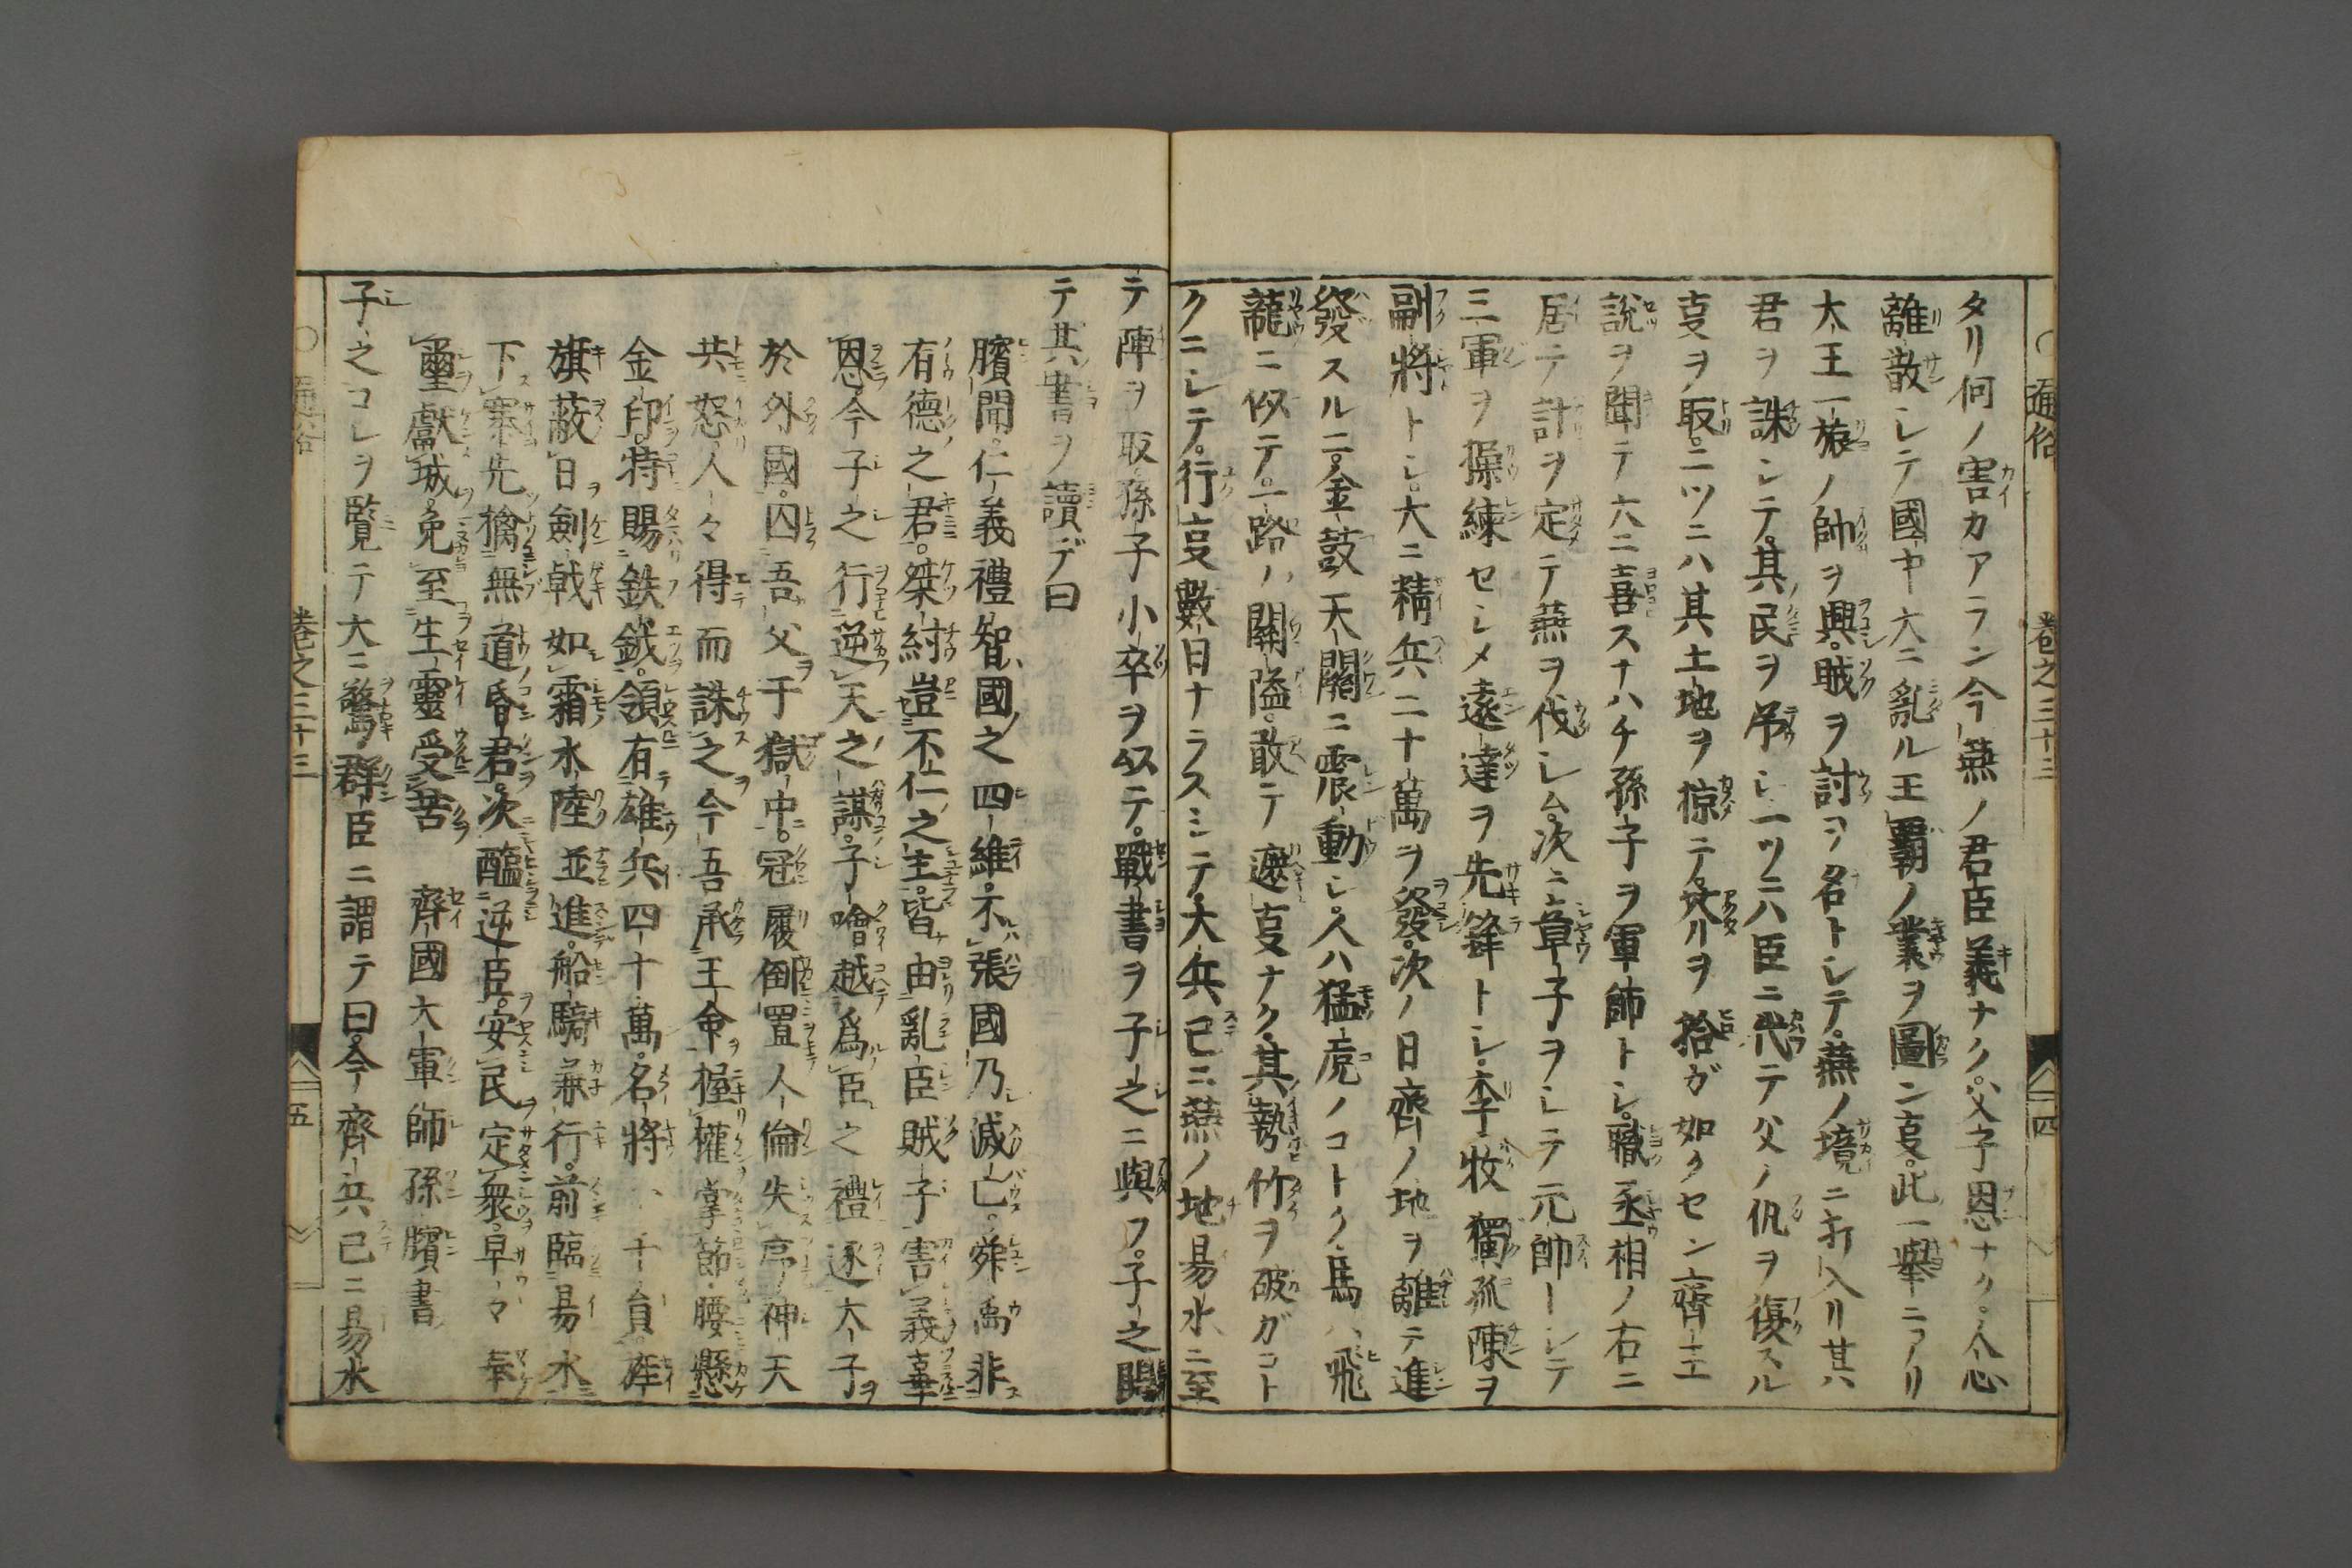 通俗 卷之三十三 四
タリ何ノ害カアラン今燕ノ君臣義ナク父子恩ナク人心
離散シテ國中大ニ亂ル王覇ノ業ヲ圖ン叓此一擧ニアリ
大王一旅ノ師ヲ興賊ヲ討ヲ名トシテ燕ノ境ニ打入リ其
君ヲ誅シテ其民ヲ吊シ一ツニハ臣ニ代テ父ノ仇ヲ復スル
叓ヲ取ニツニハ其土地ヲ掠テ芥ヲ拾ガ如クセン齊王
說ヲ聞テ大ニ喜スナハチ孫子ヲ軍師トシ職丞相ノ右ニ
居テ計ヲ定テ燕ヲ伐シム次ニ章子ヲシテ元帥トシテ
三軍ヲ操練セシメ遠達ヲ先鋒トシ李牧獨孤陳ヲ
副將トシ大ニ精兵二十萬ヲ發次ノ日齊ノ地ヲ離テ進
發スルニ金鼓天關ニ震動シ人ハ猛虎ノコトク馬ハ飛
龍ニ似テ一路ノ關隘敢テ遮叓ナク其勢竹ヲ破ガコト
クニシテ行叓數日ナラスシテ大兵已ニ燕ノ地易水ニ至
テ陣ヲ取孫子小卒ヲ以テ戰書ヲ子之ニ與フ子之開
テ其書ヲ讀デ曰
臏聞仁義禮智國之四維不張國乃滅亡舜禹非
有德之君桀紂豈不仁之主皆由亂臣賊子害義辜
恩今子之行逆天之謀子噲越爲臣之禮逐太子
於外國囚吾父于獄中冠履倒置人倫失序神天
共怒人々得而誅之今吾承王命握權掌節腰懸
金印特賜鉄鉞領有雄兵四十萬名將千員旌
旗蔽日劍戟如霜水陸並進船騎兼行前臨易水
下寨先擒無道昏君次醢逆臣安民定衆早々奉
璽獻城免至生靈受苦　齊國大軍師孫臏書
子之コレヲ覽テ大ニ驚群臣ニ謂テ曰今齊兵已ニ易水
通俗 卷之三十三 五